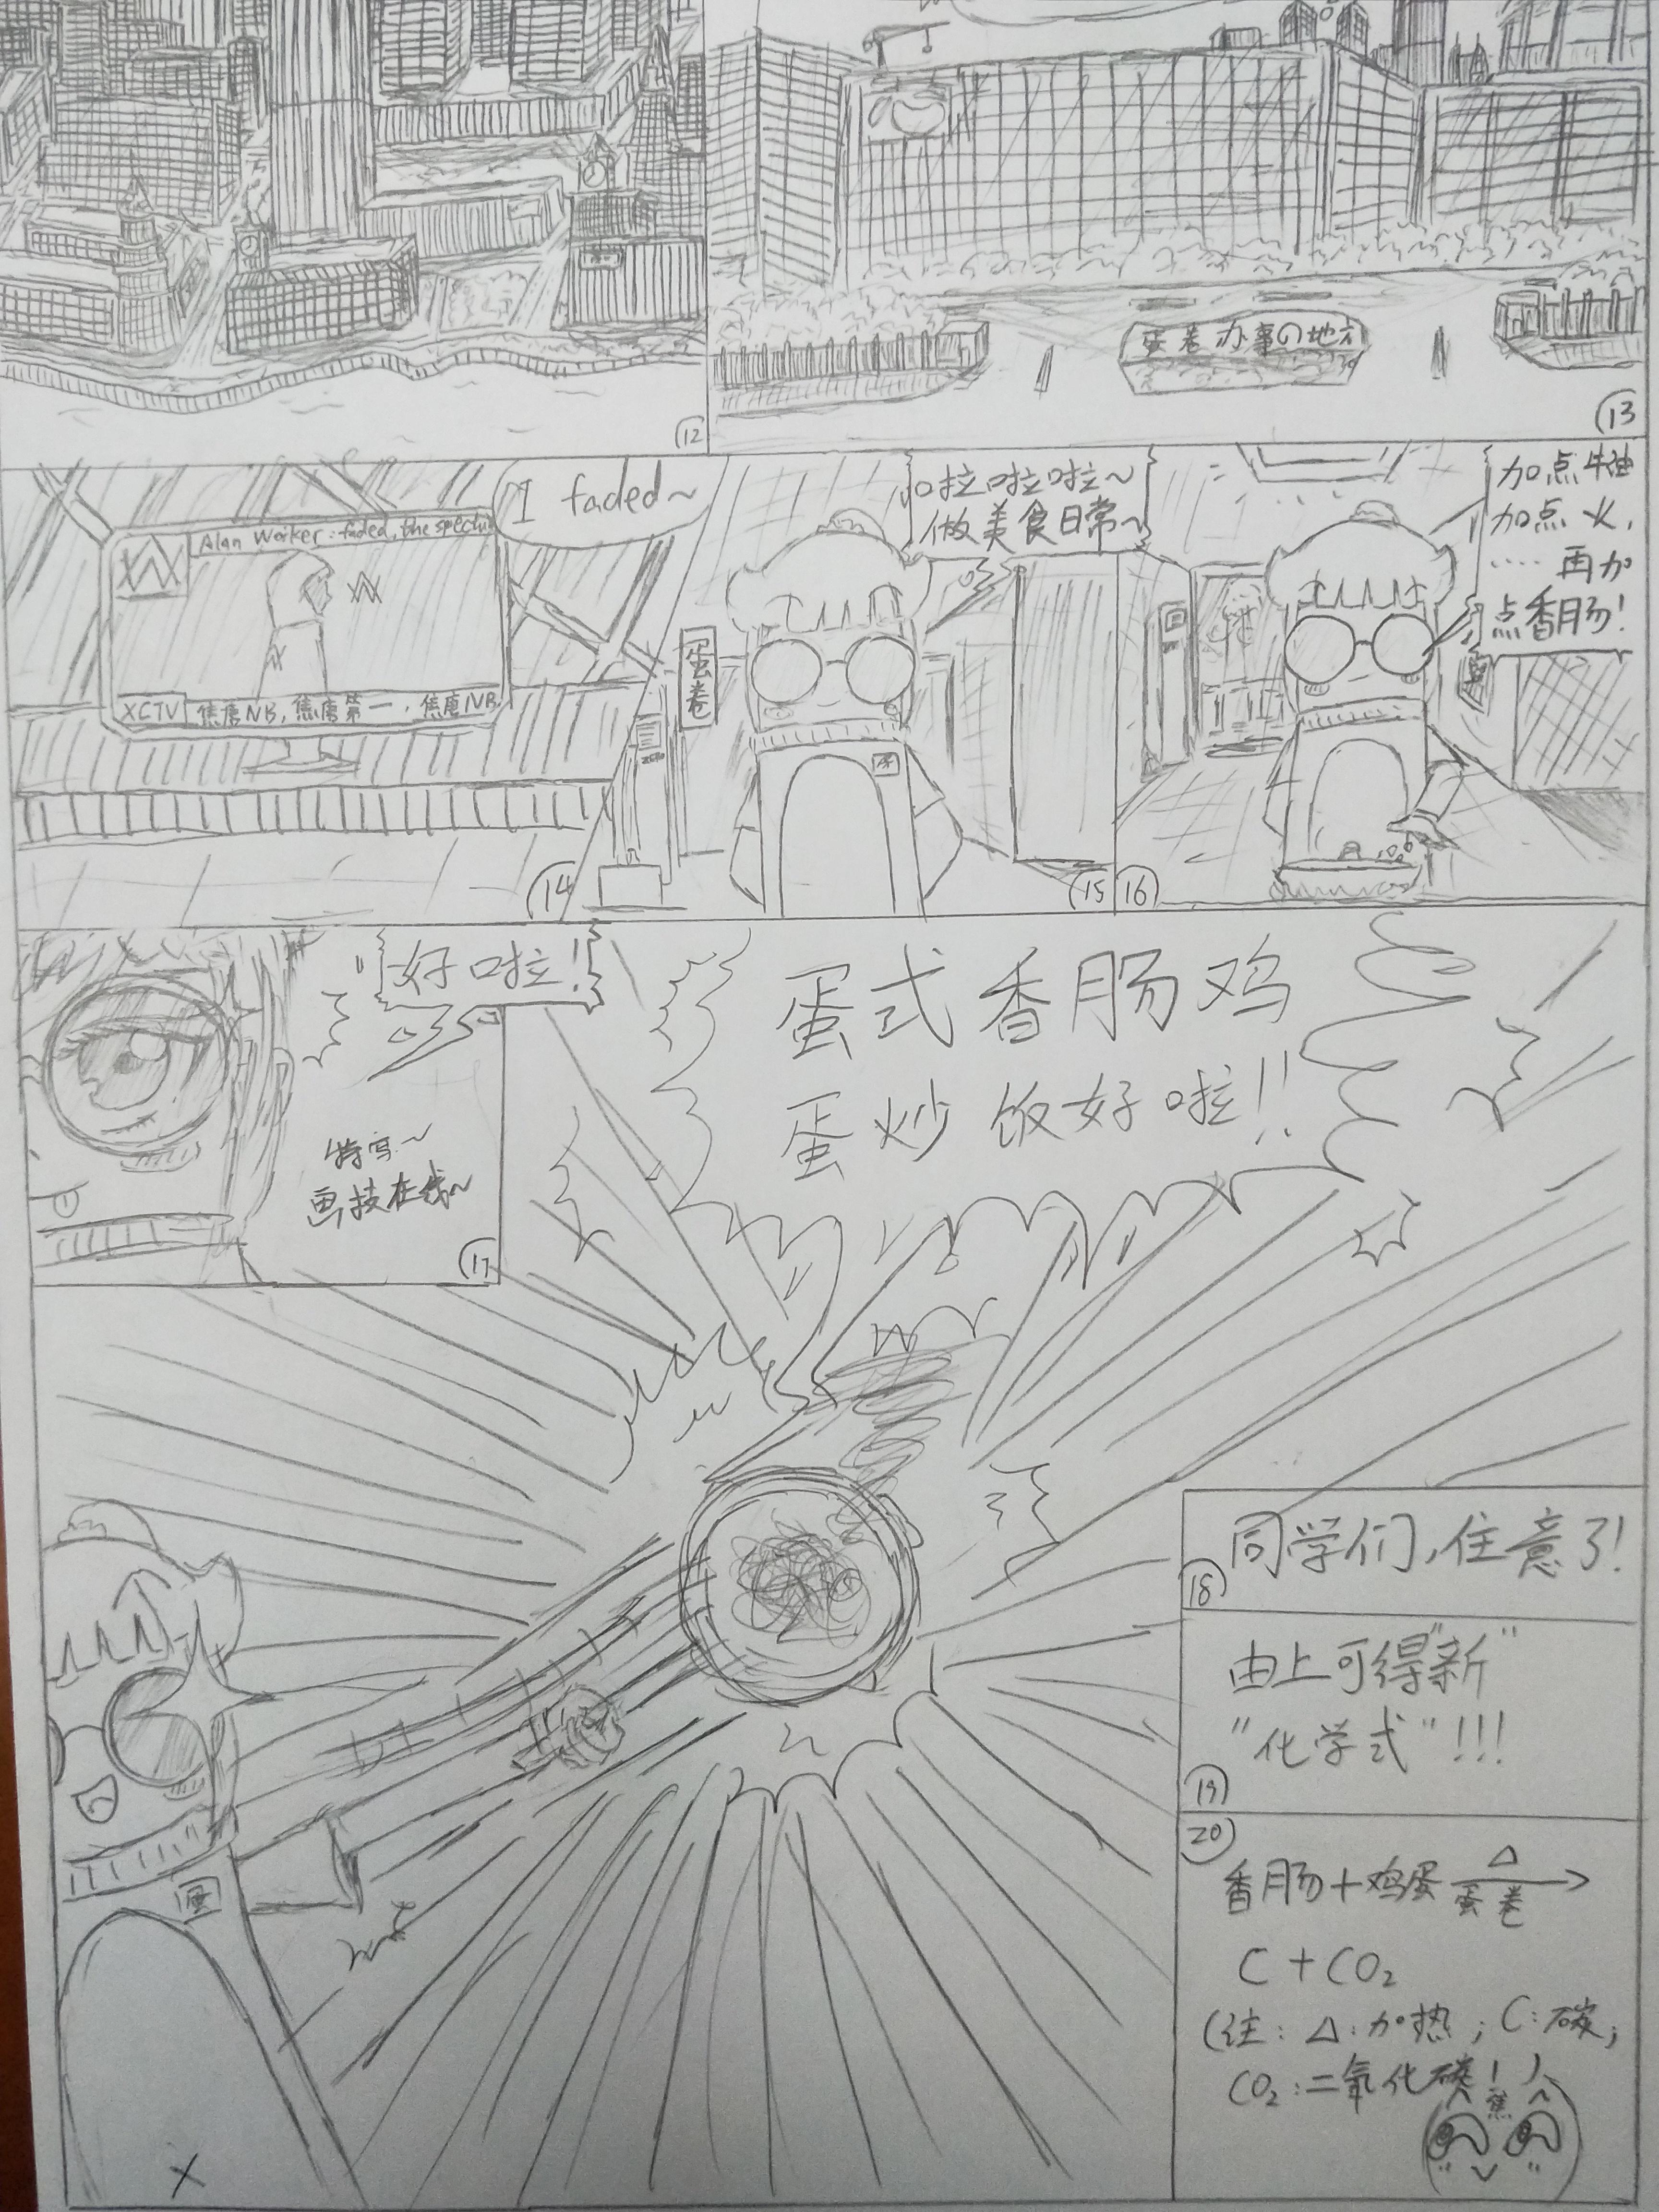 12
蛋卷办事の地方
13
I faded~
Alan Worker: faded, the spectu
XCTV
焦唐NB,焦唐第一,焦唐NB
14
啦啦啦~
做美食日常~
蛋卷
15
加点油
加点火,
....再加
点香肠!
16
好啦!!
特写~
画技在线~
17
蛋式香肠鸡
蛋炒饭好啦!!
蛋
18
同学们,住意了!
由上可得"新"
"化学式"!!!
19
20
香肠+鸡蛋 △ 蛋卷 →
C+CO₂
(注:△:加热;C:碳;
CO₂:二氧化碳!)
蕉